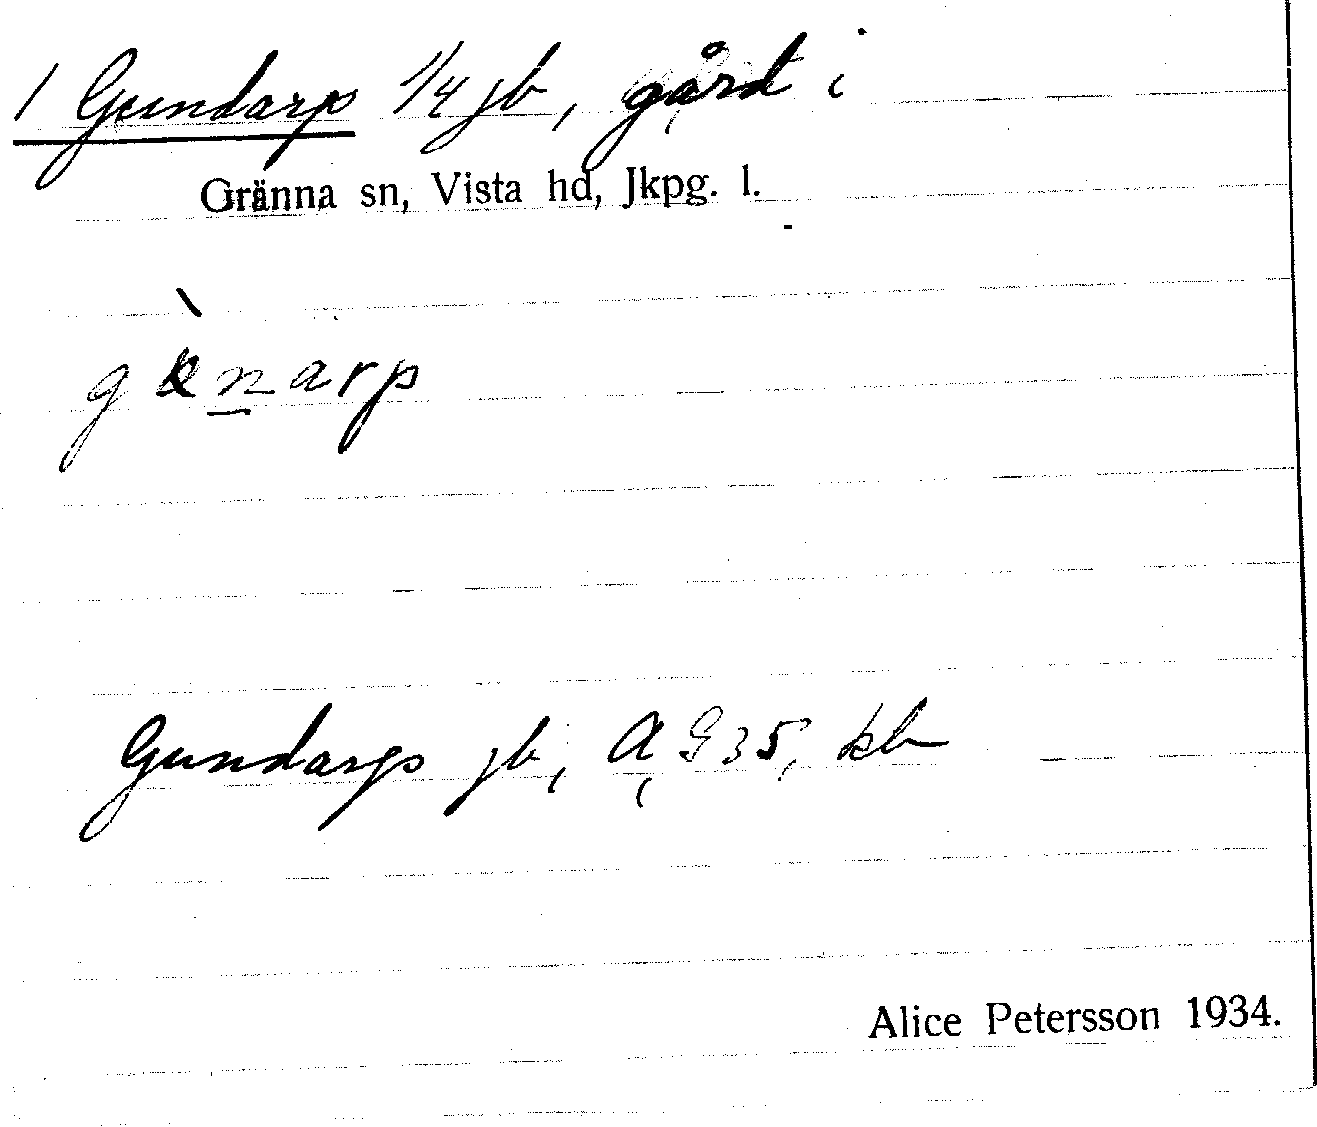 1 Gundarp 1/4 jb, gård i
Gränna sn, Vista hd, Jkpg. l.
narp
Gundarp jb, A, G35, kb
Alice Petersson 1934.